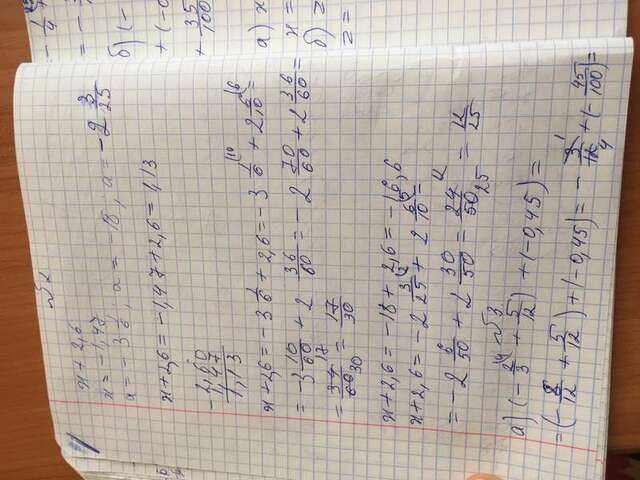 №2
x + 2,6
x = -1,47
a = -3 1/6; a = -18, a = -2 3/25
x+2,6 = -1,47+2,6 = 1,13
-2,60
1,47
1,13
x+2,6 = -3 1/6 + 2,6 = -3 1/6 (10 + 2 6/10 (6 =
= -3 10/60 + 2 36/60 = -2 70/60 + 2 36/60 =
= 34/60 17 30 = 17/30
x+2,6 = -18 + 2,6 = -16,6
x+2,6 = -2 3/25 (2 + 2 6/10 (5 =
= -2 6/50 + 2 30/50 = 24/50 12 25 = 12/25
№3.
а) (-2/3 (4 + 5/12) + (-0,45) =
= (-8/12 + 5/12) + (-0,45) = -3/12 1 4 + (-45/100) =
- 1/4
б) (-
+ (-0
+ 35/100
а) x
x =
б) z
z =